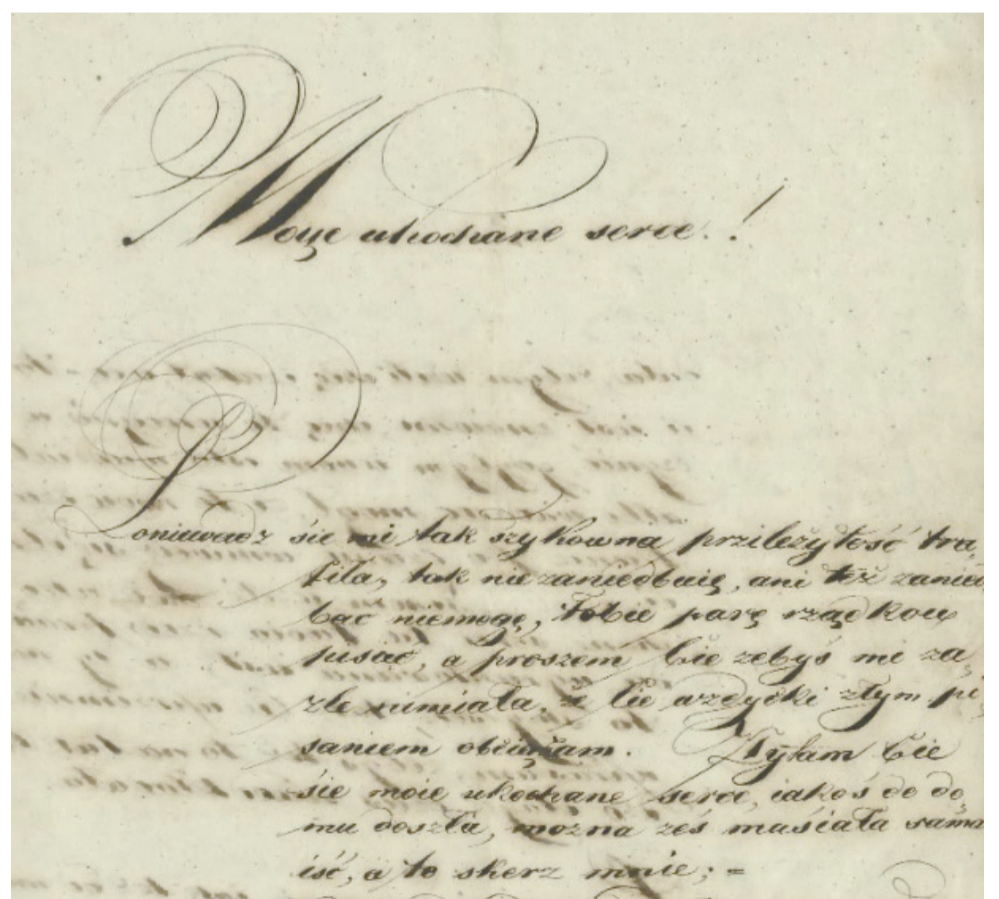 Moje ukochane serce!
Poniewadz sie mi tak szykowna przileżytość tra,
fila, tak niezaniedbuię, ani też zanied
bać niemogę, Tobie parę rządkow
pisać, a proszem Cie zebyś mi za,
zle nimiała, ż Cie wzdycki złym pi,
saniem obciużam. Pytam Cie
sie moie ukochane serce, iakoś do do,
mu doszła, możnaześ musiała sama
iść, a to skerz mnie; =